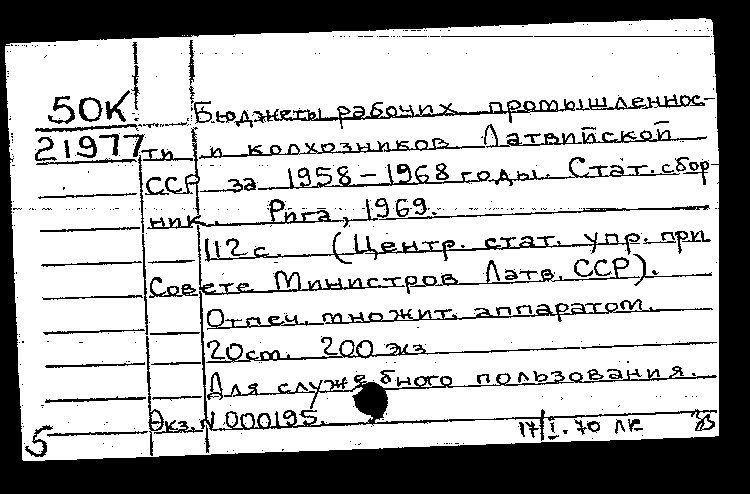 50К Бюджеты рабочих промышленнос-
21977 ти и колхозников Латвийской
ССР за 1958-1968 годы. Стат. сбор-
ник. Рига, 1969.
112 с. (Центр. стат. упр. при
Совете Министров Латв. ССР).
Отпеч. множит. аппаратом.
20см. 200 экз
Для служебного пользования.
Экз. N 000195.
5 17/I.70 ЛК